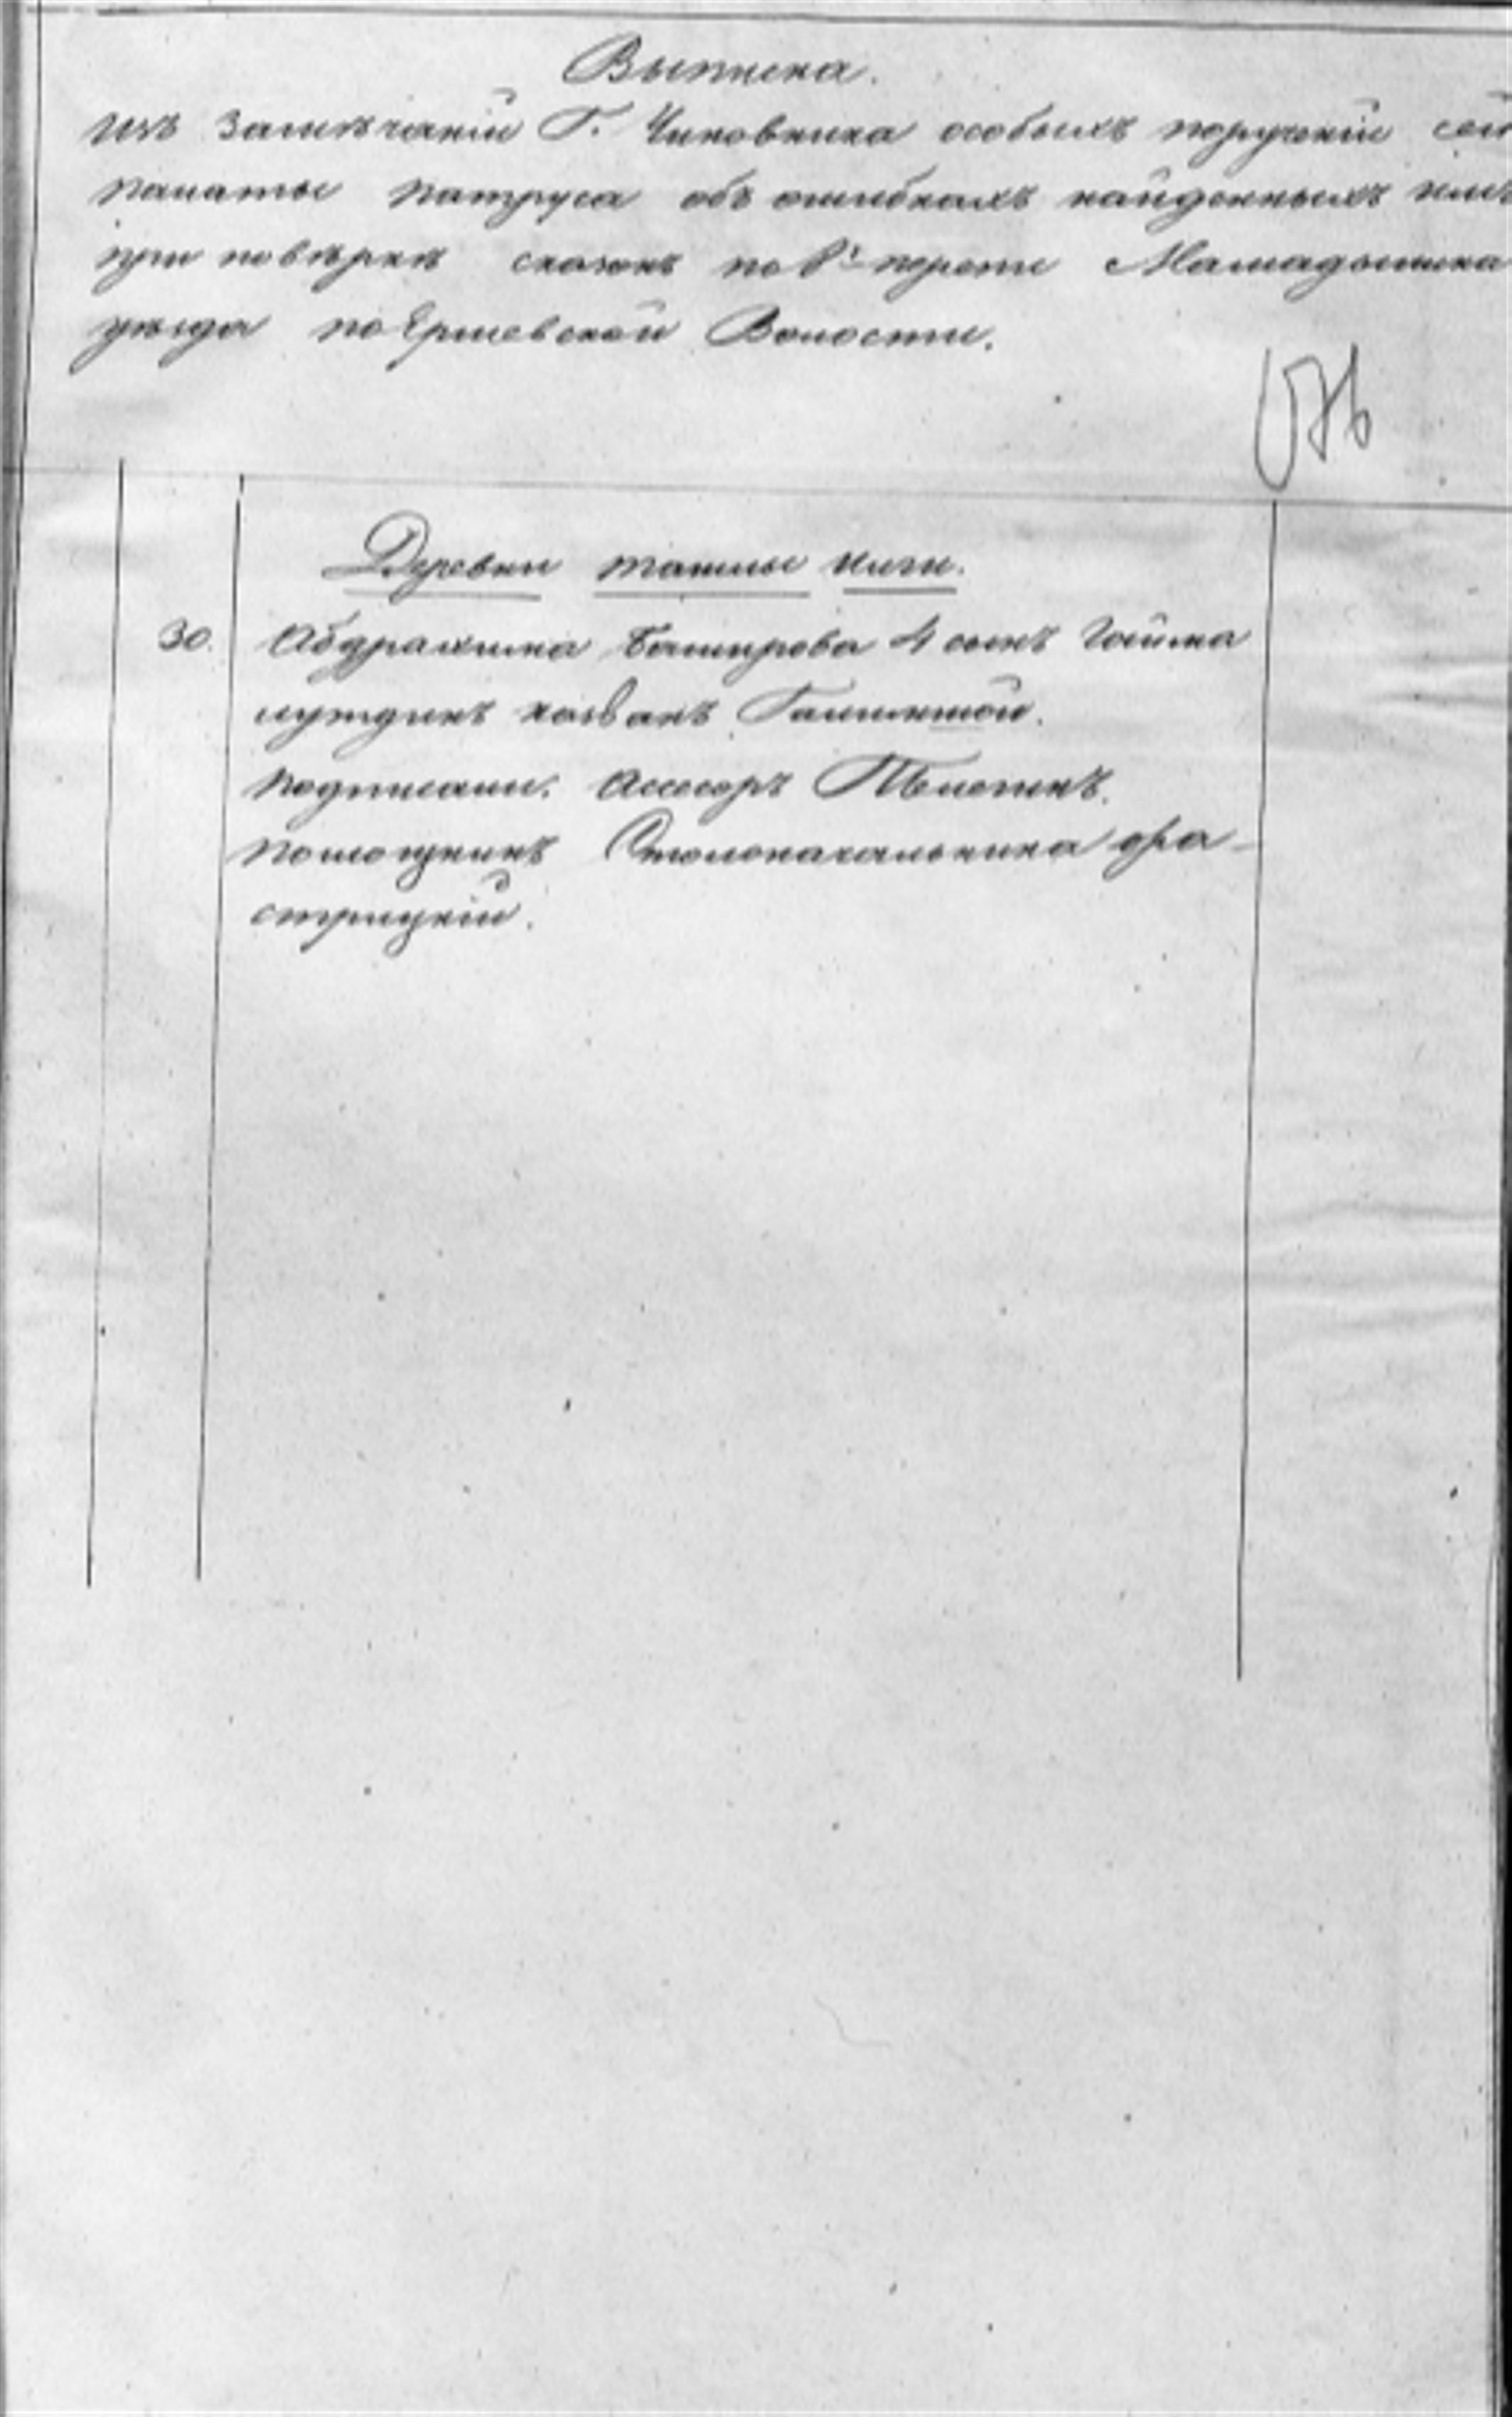 Выписка.
изъ замѣчаній Г. Чиновника особыхъ порученій сей
палаты Патруса объ ошибкахъ найденныхъ имъ
при повѣркѣ сказокъ по 8й перепи Мамадышска
уѣзда по Ершевской Волости.
Деревни
30. Абдрахима Баширова 4 сынъ Гайма
лутдинъ названъ
подписали: Асесоръ
помощникъ Столоначальника
стрицкій.